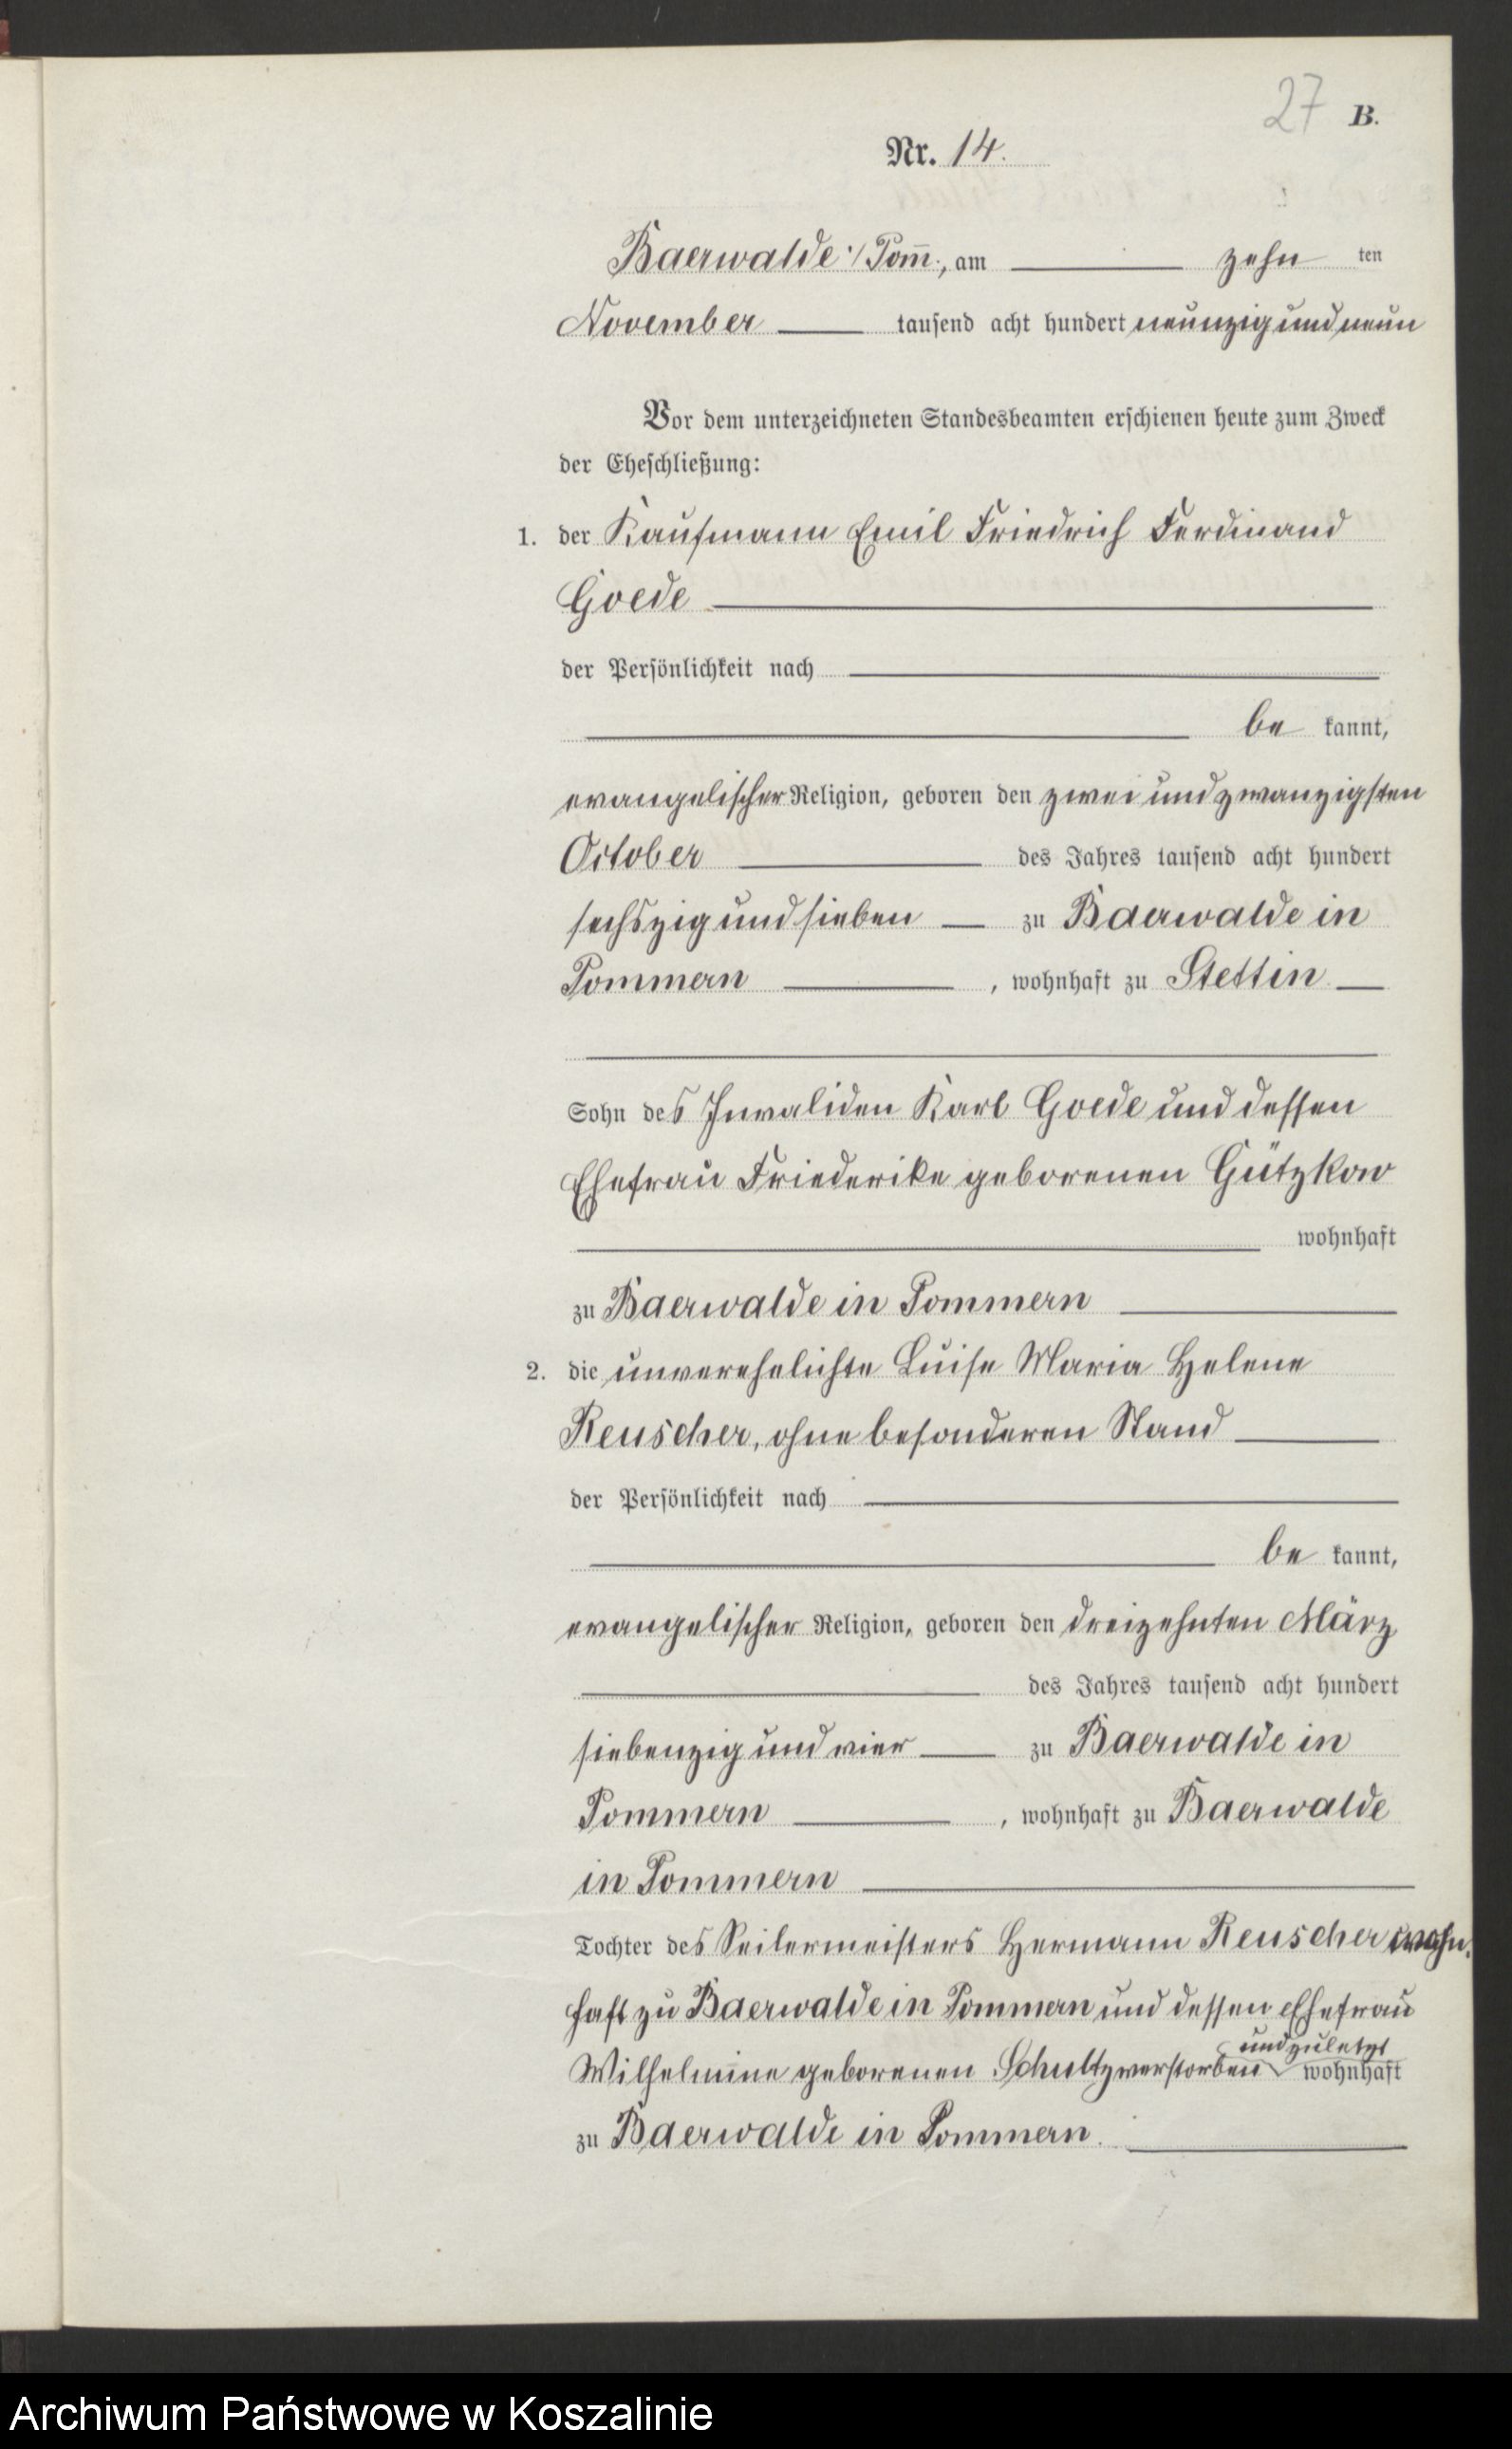 27 B.
Nr. 14.
Baerwalde i/Pom̄., am zehn ten
November tausend acht hundert neunzig und neun
Vor dem unterzeichneten Standesbeamten erschienen heute zum Zweck
der Eheschließung:
1. der Kaufmann Emil Friedrich Ferdinand
Goede
der Persönlichkeit nach
be kannt,
evangelischer Religion, geboren den zwei und zwanzigsten
October des Jahres tausend acht hundert
sechszig und sieben zu Baerwalde in
Pommern , wohnhaft zu Stettin
Sohn des Invaliden Karl Goede und dessen
Ehefrau Friederike geborenen Gützkow
wohnhaft
zu Baerwalde in Pommern
2. die unverehelichte Luise Maria Helene
Reuscher, ohne besonderen Stand
der Persönlichkeit nach
be kannt,
evangelischer Religion, geboren den dreizehnten März
des Jahres tausend acht hundert
siebenzig und vier zu Baerwalde in
Pommern , wohnhaft zu Baerwalde
in Pommern
Tochter des Seilermeisters Hermann Reuscher wohn-
haft zu Baerwalde in Pommern und dessen Ehefrau
und zuletzt
Wilhelmine geborenen Schultz verstorben wohnhaft
zu Baerwalde in Pommern.
Archiwum Państwowe w Koszalinie